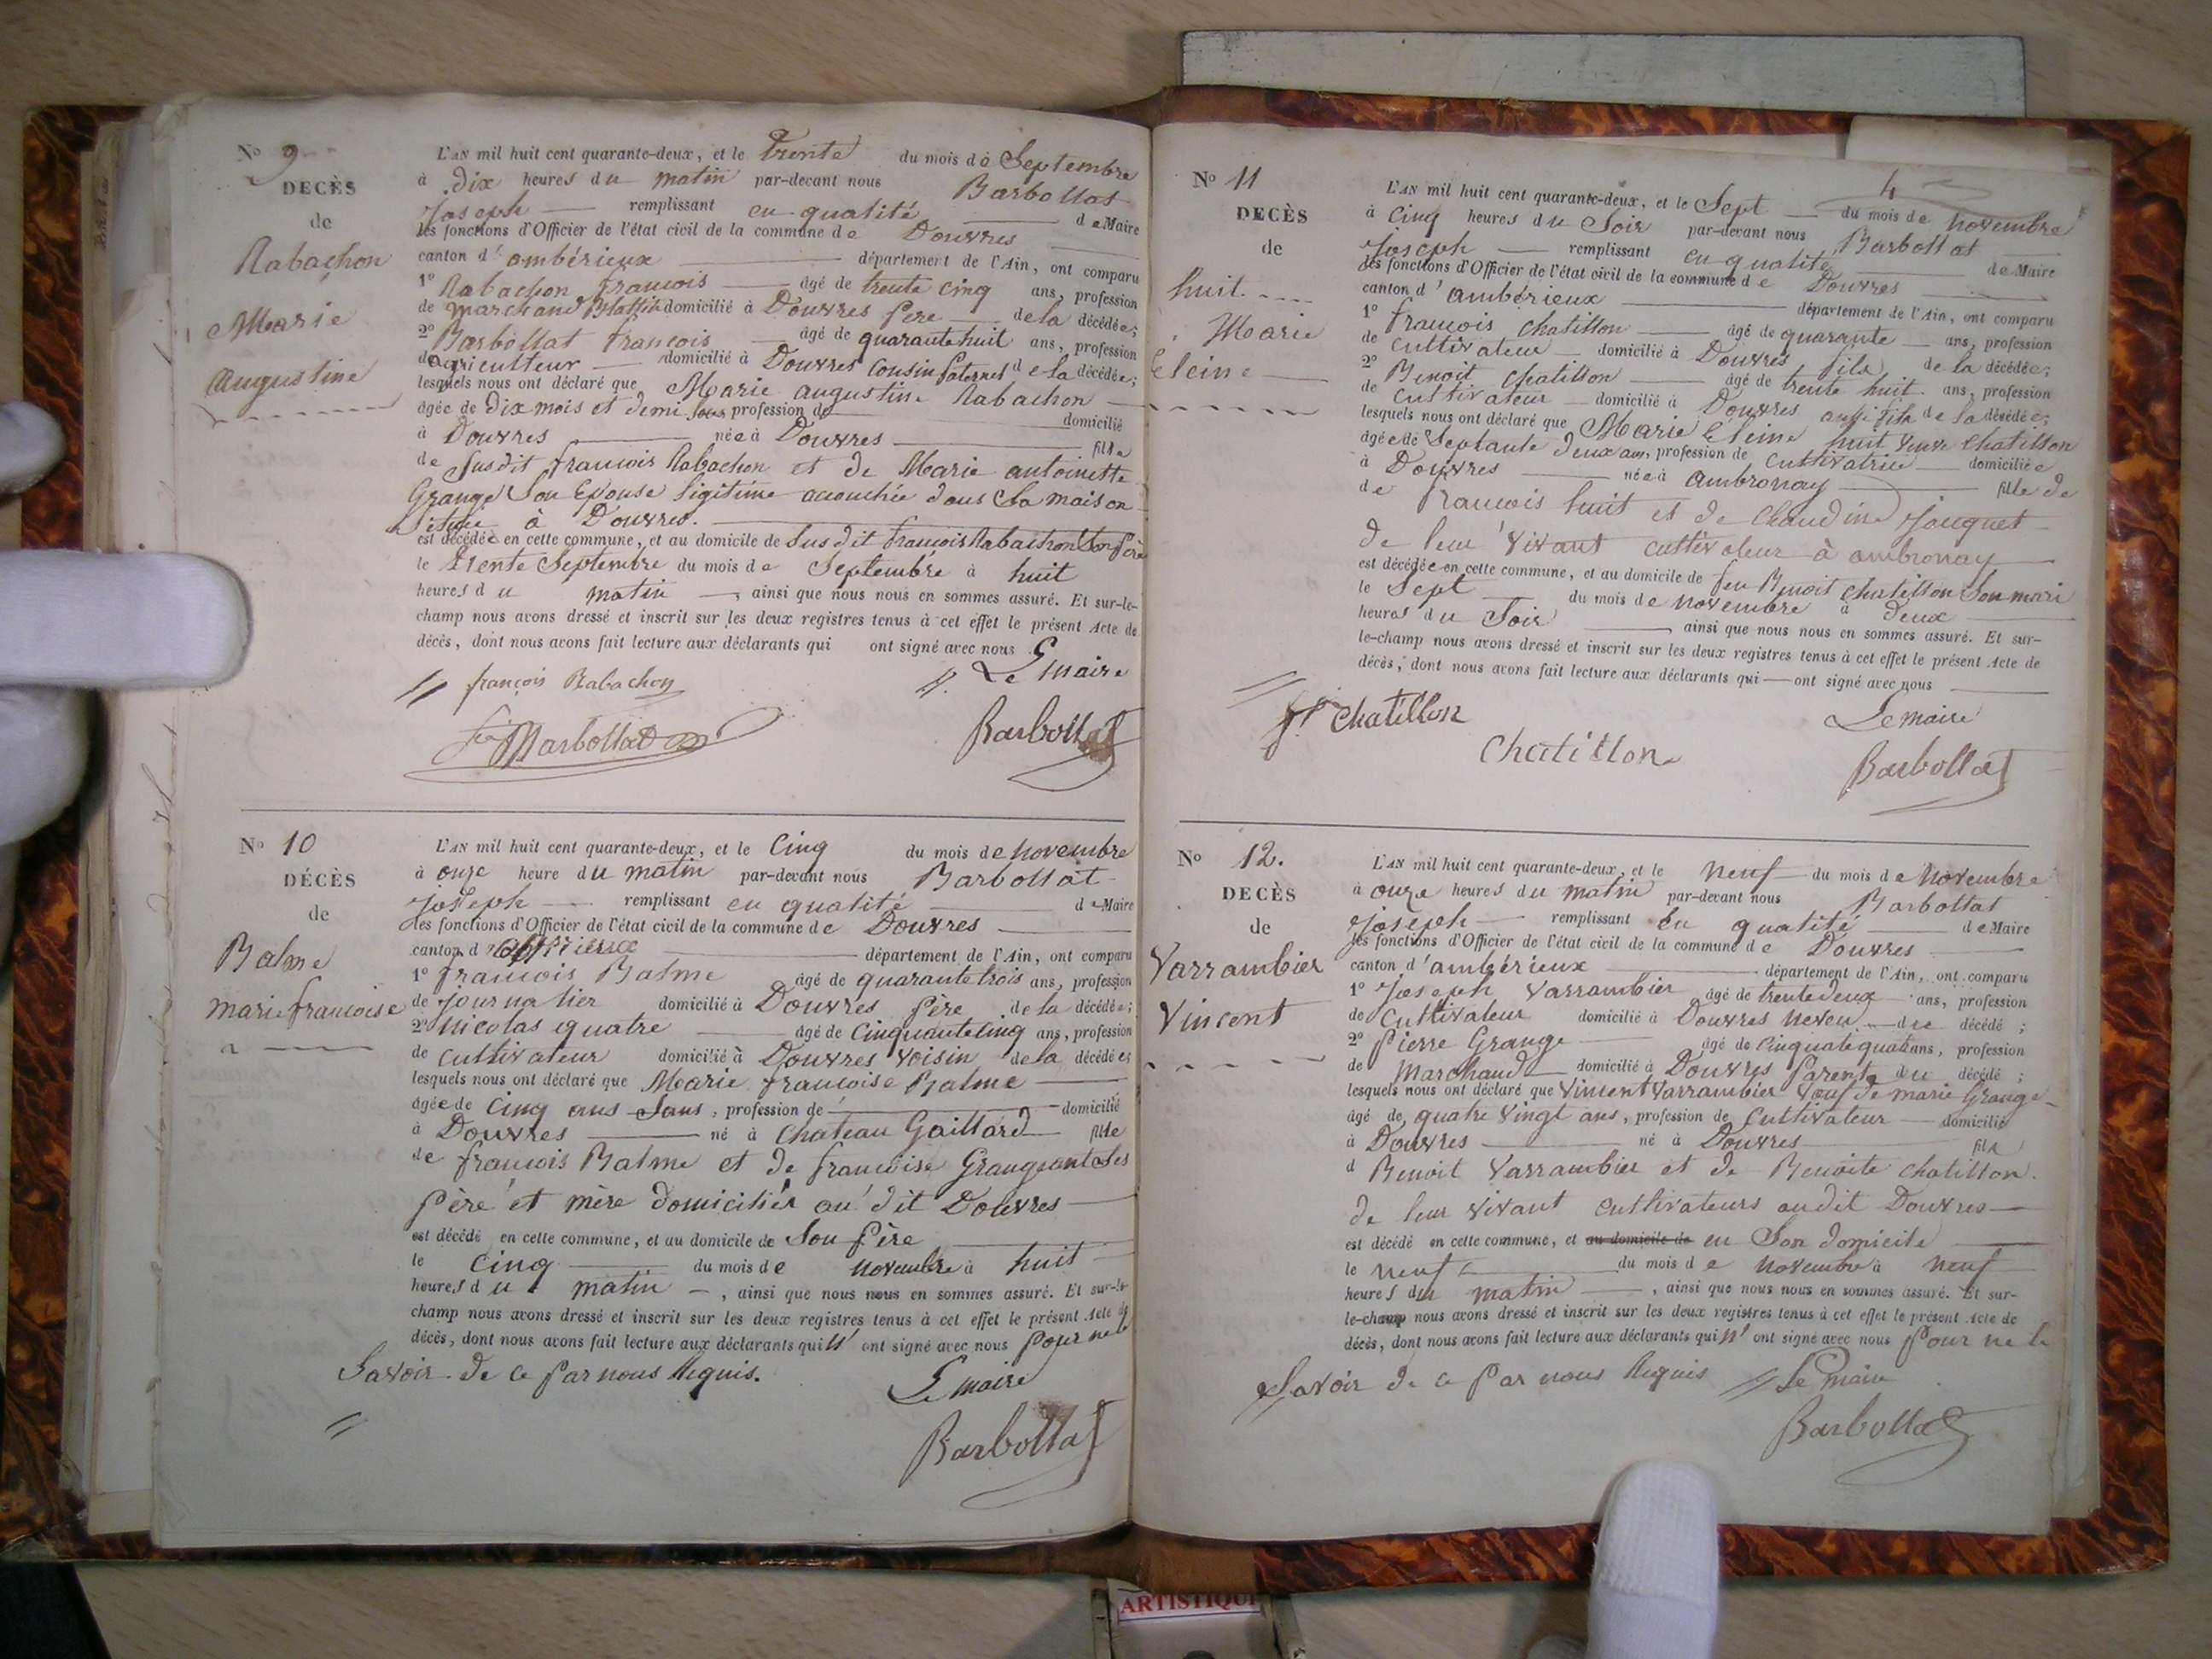 No 9
DECÈS
de
Rabachon
Marie
Augustine
L'AN mil huit cent quarante-deux, et le trente du mois de Septembre
à dix heures du matin par-devant nous Barbollat
Joseph remplissant en qualité de Maire
les fonctions d'Officier de l'état civil de la commune de Douvres
canton d'ambérieux département de l'Ain, ont comparu
1o Rabachon françois âgé de trente cinq ans, profession
de marchand domicilié à Douvres Père de la décédée;
2o Barbollat françois âgé de quarante huit ans, profession
d'agriculteur domicilié à Douvres Cousin Paternel de la décédée;
lesquels nous ont déclaré que Marie augustine Rabachon
âgée de dix mois et demi sans profession de domicilié
à Douvres née à Douvres fille
de Susdit françois Rabachon et de Marie antoinette
Grange Son Epouse ligitime accouchée dans Sa maison
Située à Douvres.
est décédée en cette commune, et au domicile de Susdit françois Rabachon Son Père
le trente Septembre du mois de Septembre à huit
heures du matin, ainsi que nous nous en sommes assuré. Et sur-le-
champ nous avons dressé et inscrit sur les deux registres tenus à cet effet le présent Acte de
décès, dont nous avons fait lecture aux déclarants qui ont signé avec nous
Le maire
françois Rabachon
Barbollat
Barbollat
No 10
DÉCÈS
de
Balme
marie francoise
L'AN mil huit cent quarante-deux, et le Cinq du mois de novembre
à onze heure du matin par-devant nous Barbollat
joseph remplissant en qualité de Maire
les fonctions d'Officier de l'état civil de la commune de Douvres
canton d département de l'Ain, ont comparu
1o françois Balme âgé de quarante trois ans, profession
de journalier domicilié à Douvres Père de la décédée;
2o nicolas quatre âgé de Cinquante Cinq ans, profession
de Cultivateur domicilié à Douvres voisin de la décédée;
lesquels nous ont déclaré que Marie francoise Balme
âgée de Cinq ans Sans, profession de domicilié
à Douvres né à Chateau Gaillard fille
de françois Balme et de francoise Ses
Père et mère domiciliés au dit Douvres
est décédé en cette commune, et au domicile de Son Père
le Cinq du mois de novembre à huit
heures du matin, ainsi que nous nous en sommes assuré. Et sur-le-
champ nous avons dressé et inscrit sur les deux registres tenus à cet effet le présent Acte de
décès, dont nous avons fait lecture aux déclarants qui n' ont signé avec nous Pour ne le
Savoir de ce Par nous Requis.
Le maire
Barbollat
4
No 11
DECÈS
de
huit
Marie
éleine
L'AN mil huit cent quarante-deux, et le Sept du mois de novembre
à Cinq heures du Soir par-devant nous Barbollat
Joseph remplissant en qualité de Maire
les fonctions d'Officier de l'état civil de la commune de Douvres
canton d'ambérieux département de l'Ain, ont comparu
1o françois Chatillon âgé de quarante ans, profession
de Cultivateur domicilié à Douvres fils de la décédée;
2o Benoit Chatillon âgé de trente huit ans, profession
de Cultivateur domicilié à Douvres aussi fils de la décédée;
lesquels nous ont déclaré que Marie éleine huit veuve Chatillon
âgée de Septante Deux ans, profession de Cultivatrice domiciliée
à Douvres née à ambronay fille de
de françois huit et de Claudine Jouquet
de leur vivant cultivateur à ambronay
est décédée en cette commune, et au domicile de feu Benoit Chatillon Son mari
le Sept du mois de novembre à deux
heures du Soir ainsi que nous nous en sommes assuré. Et sur-
le-champ nous avons dressé et inscrit sur les deux registres tenus à cet effet le présent Acte de
décès, dont nous avons fait lecture aux déclarants qui ont signé avec nous
fs Chatillon
Chatillon
Le maire
Barbollat
No 12.
DECÈS
de
Varrambier
Vincent
L'AN mil huit cent quarante-deux, et le neuf du mois de novembre
à onze heures du matin par-devant nous Barbollat
joseph remplissant en qualité de Maire
les fonctions d'Officier de l'état civil de la commune de Douvres
canton d'ambérieux département de l'Ain, ont comparu
1o Joseph Varrambier âgé de trente deux ans, profession
de Cultivateur domicilié à Douvres neveu du décédé;
2o Pierre Grange âgé de Cinquate quatre ans, profession
de Marchand domicilié à Douvres Parente du décédé;
lesquels nous ont déclaré que Vincent Varrambier veuf de marie Grange
âgé de quatre vingt ans, profession de Cultivateur domicilié
à Douvres né à Douvres fils
d Benoit Varrambier et de Benoite Chatillon.
de leur vivant cultivateurs audit Douvres
est décédé en cette commune, et au domicile de en Son domicile
le neuf du mois de novembre à neuf
heures du matin, ainsi que nous nous en sommes assuré. Et sur-
le-champ nous avons dressé et inscrit sur les deux registres tenus à cet effet le présent Acte de
décès, dont nous avons fait lecture aux déclarants qui n' ont signé avec nous Pour ne le
Savoir de ce Par nous Requis
Le maire
Barbollat
ARTISTIQUE